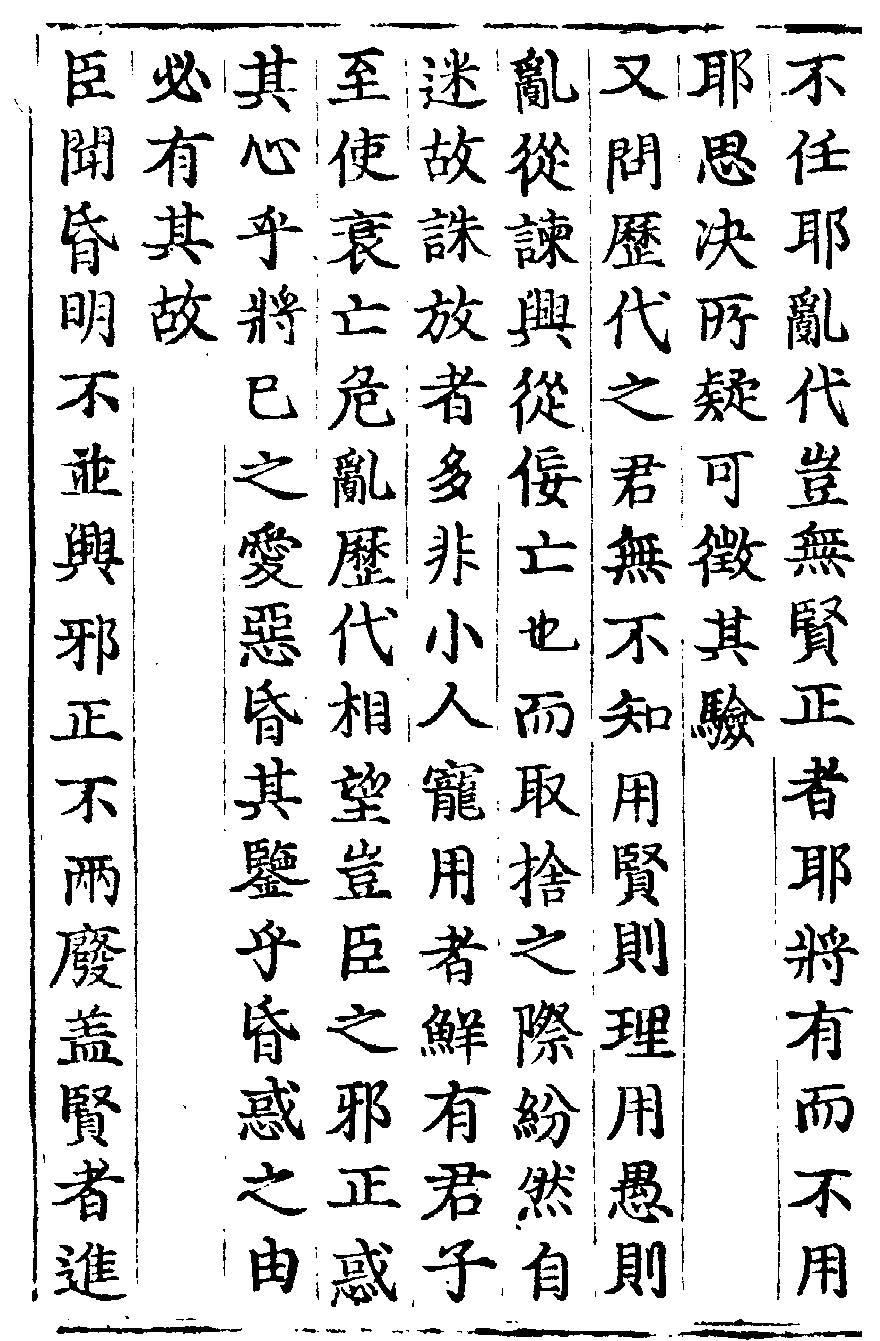 不任耶亂代豈無賢正者耶將有而不用
耶思决所疑可徵其驗
又問歷代之君無不知用賢則理用愚則
亂從諫興從佞亡也而取捨之際紛然自
迷故誅放者多非小人寵用者鮮有君子
至使衰亡危亂歷代相望豈臣之邪正惑
其心乎將已之愛惡昏其鑒乎昏惑之由
必有其故
臣聞昏明不並興邪正不兩廢盖賢者進